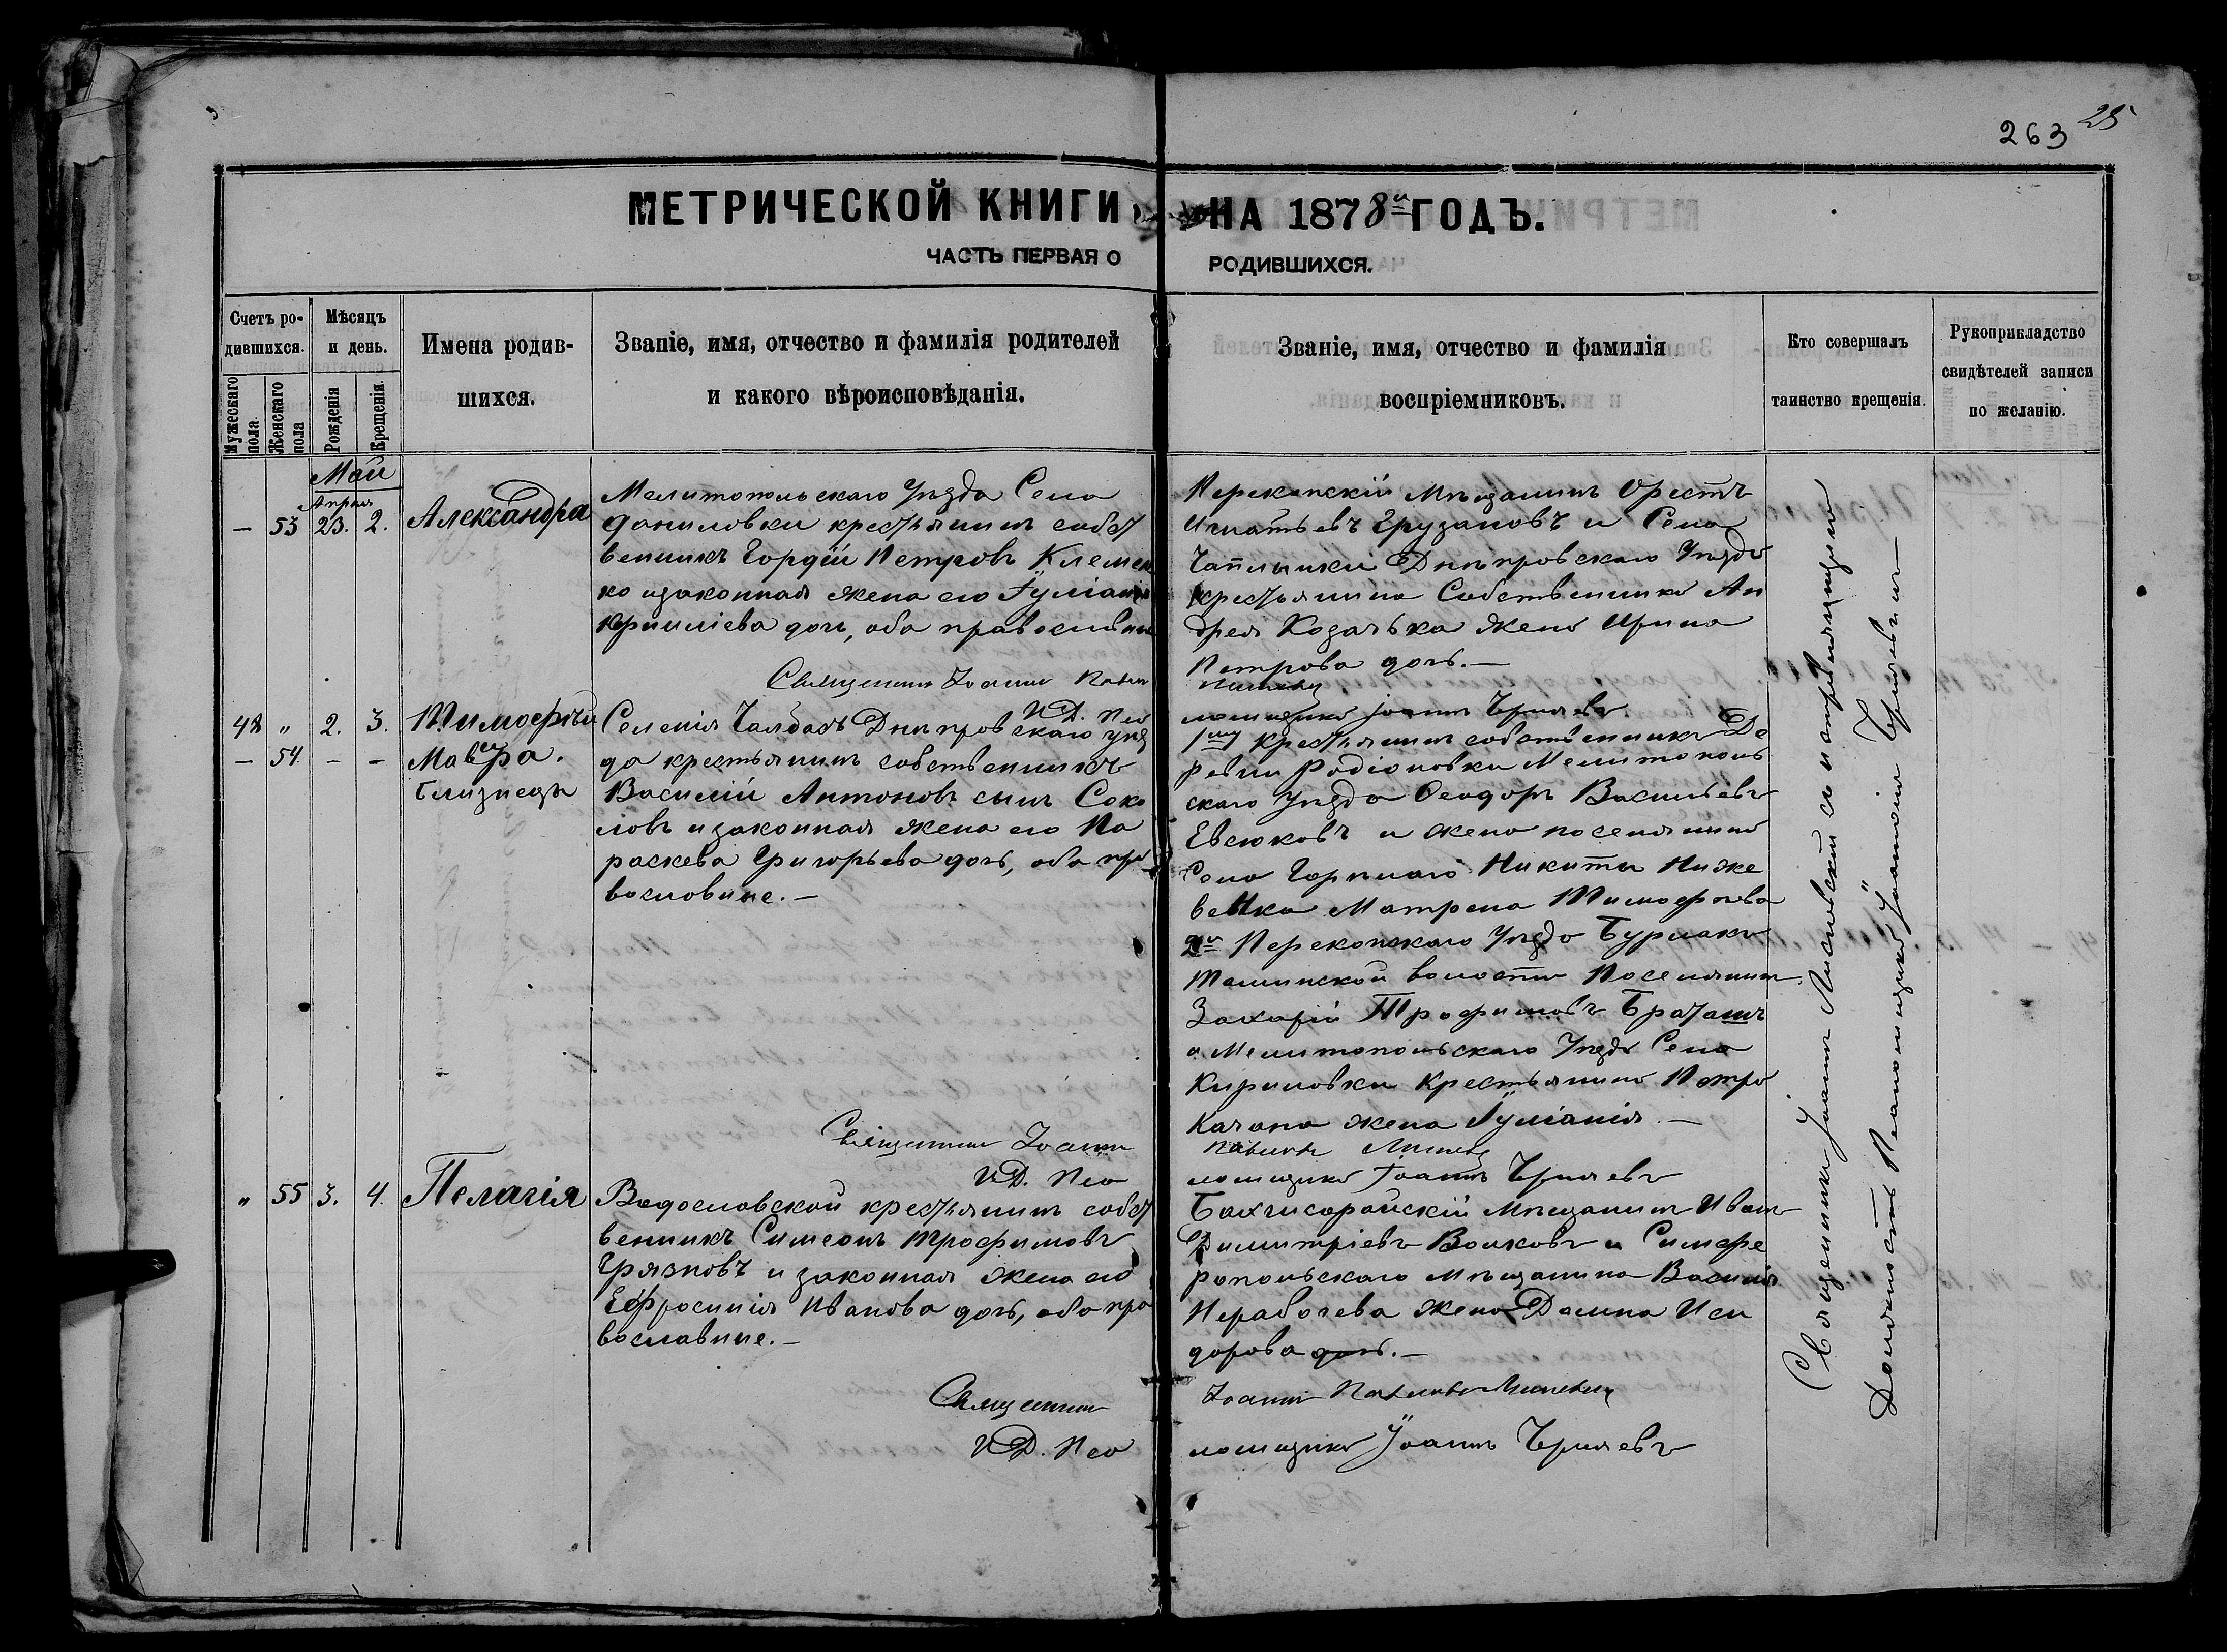 263 25
МЕТРИЧЕСКОЙ КНИГИ НА 1878й ГОДЪ.
ЧАСТЬ ПЕРВАЯ О РОДИВШИХСЯ.
Счетъ ро-
дившихся.
Мужескаго пола.
Женскаго пола
Мѣсяцъ
и день.
Рожденія
Крещенія.
Имена родив-
шихся.
Званіе, имя, отчество и фамилія родителей
и какого вѣроисповѣданія.
Званіе, имя, отчество и фамилія
воспріемниковъ.
Кто совершалъ
таинство крещенія.
Рукоприкладство
свидѣтелей записи
по желанію.
Май
Апрѣля
— 53 23. 2. Александра
Мелитопольскаго Уѣзда Села
Даниловки крестьянинъ собст
венникъ Гордій Петровъ Клемен
ко и законная жена его Іуліанія
дочь, оба православные
Перекопскій Мѣщанинъ Орестъ
Игнатьевъ Грузановъ и Села
Чаплынки Днѣпровскаго Уѣзда
Крестьянина Собственника Ан
дрея Козачька жена Ирина
Петрова дочь.—
Священникъ Іоаннъ
И.Д. Пса
ломщика Іоаннъ Чернявъ
42 " 2. 3. Тимофей
— 54 — — Мавра.
близнецы
Селенія Чалбасъ Днѣпровскаго уѣз
да крестьянинъ собственникъ
Василій Антоновъ сынъ Соко
ловъ и законная жена его Па
раскева Григорьева дочь, оба пра
вославные.—
крестьянинъ собственникъ Де
ревни Родіоновки Мелитополь
скаго Уѣзда Ѳеодоръ Васильевъ
Евсюковъ и жена поселянина
Села Горѣлаго Никиты Ниже
Матрена Тимофѣева
2й Перекопскаго Уѣзда Бурлакъ
Тамминской волости Поселянинъ
Захарій Трофимовъ Браташъ
и Мелитопольскаго Уѣзда Села
Кириловки Крестьянина Петра
Качана жена Іуліанія.—
Священникъ Іоаннъ
И.Д. Пса
ломщика Іоаннъ Чернявъ
" 55 3. 4. Пелагія
крестьянинъ собст
венникъ Симеонъ Трофимовъ
Грязновъ и законная жена его
Ефросинія Иванова дочь, оба пра
вославные.—
Бахчисарайскій Мѣщанинъ Иванъ
Димитріевъ Волковъ и Симфе
ропольскаго Мѣщанина Василія
Нерабочева жена Домна Иси
дорова дочь.—
Священникъ Іоаннъ
И.Д. Пса
ломщика Іоаннъ Чернявъ
Священникъ Іоаннъ Лисевскій съ исправляющимъ
Должность Псаломщика Іоанномъ